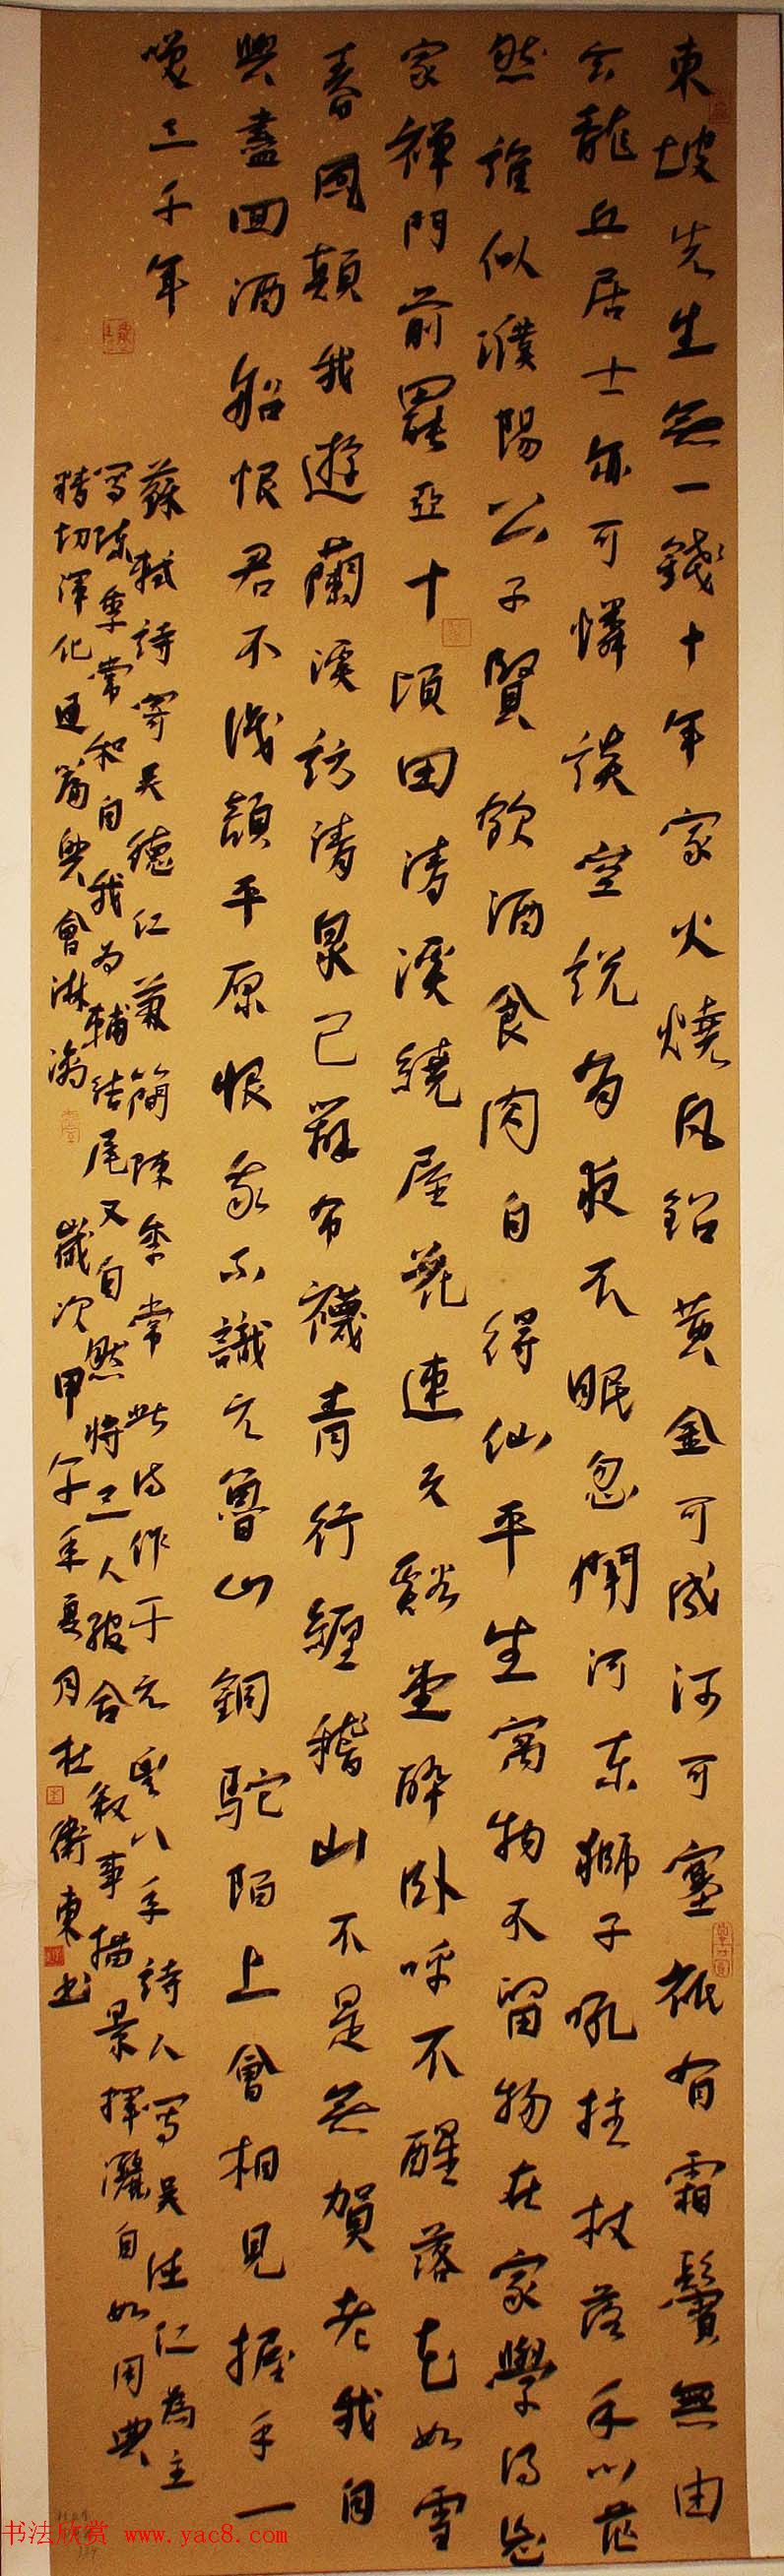 東坡先生無一錢十年家火燒凡鉛黄金可成河可塞祇有霜鬢無由
玄龍丘居士亦可憐談空説有夜不眠忽聞河東獅子吼拄杖落手心茫
然誰似濮陽公子賢飲酒食肉自得仙平生寓物不留物在家學得忘
家禪門前罷亞十頃田清溪繞屋花連天谿堂醉卧呼不醒落花如雪
春風顛我遊蘭溪訪清泉已辦布襪青行纏稽山不是無賀老我自
興盡回酒船恨君不識顔平原恨我不識元魯山銅駝陌上會相見握手一
笑三千年
蘇軾詩寄吴德仁兼簡陳季常此詩作于元豐八年詩人寫吴德仁為主
寫陳季常和自我為輔結尾又自然將三人綰合叙事描景揮灑自如用典
精切渾化通篇興會淋漓歲次甲午年夏月杜衛東書
书法欣赏 www.yac8.com